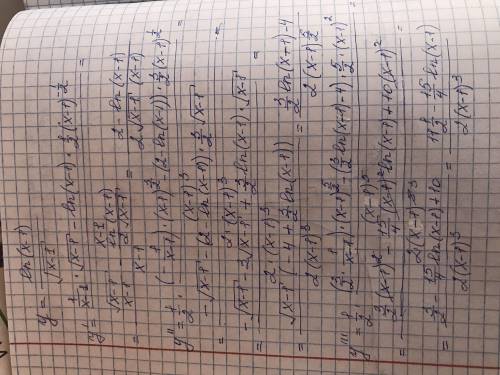 y = \frac{ln(x-1)}{\sqrt{x-1}}
y' = \frac{\frac{1}{x-1} \cdot \sqrt{x-1} - ln(x-1) \cdot \frac{1}{2}(x-1)^{-\frac{1}{2}}}{x-1} =
= \frac{\frac{\sqrt{x-1}}{x-1} - \frac{ln(x-1)}{2\sqrt{x-1}}}{x-1} = \frac{2 - ln(x-1)}{2\sqrt{x-1}(x-1)}
y'' = \frac{1}{2} \cdot \frac{(-\frac{1}{x-1}) \cdot (x-1)^{\frac{3}{2}} - (2 - ln(x-1)) \cdot \frac{3}{2}(x-1)^{\frac{1}{2}}}{(x-1)^3} =
= \frac{-\sqrt{x-1} - (2 - ln(x-1)) \cdot \frac{3}{2}\sqrt{x-1}}{2 \cdot (x-1)^3} =
= \frac{-\sqrt{x-1} - 3\sqrt{x-1} + \frac{3}{2} ln(x-1) \cdot \sqrt{x-1}}{2 \cdot (x-1)^3} =
= \frac{\sqrt{x-1}(-4 + \frac{3}{2} ln(x-1))}{2(x-1)^3} = \frac{\frac{3}{2} ln(x-1) - 4}{2(x-1)^{\frac{5}{2}}}
y''' = \frac{1}{2} \cdot \frac{(\frac{3}{2} \cdot \frac{1}{x-1}) \cdot (x-1)^{\frac{5}{2}} - (\frac{3}{2} ln(x-1) - 4) \cdot \frac{5}{2} \cdot (x-1)^2}{(x-1)^5} =
= \frac{\frac{3}{2}(x-1)^2 - \frac{15}{4}(x-1)^2 ln(x-1) + 10(x-1)^2}{2(x-1)^5} =
= \frac{\frac{3}{2} - \frac{15}{4} ln(x-1) + 10}{2(x-1)^3} = \frac{11\frac{1}{2} - \frac{15}{4} ln(x-1)}{2(x-1)^3}